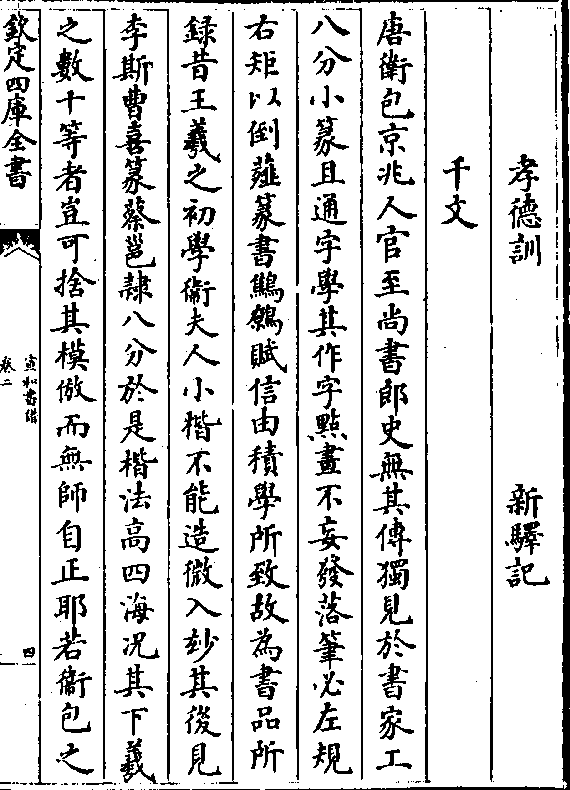 孝德訓　新驛記
千文
唐衛包京兆人官至尚書郎史無其傳獨見於書家工
八分小篆且通字學其作字點畫不妄發落筆必左規
右矩以倒薤篆書鷦鷯賦信由積學所致故為書品所
録昔王羲之初學衛夫人小楷不能造微入玅其後見
李斯曹喜篆蔡邕隷八分於是楷法髙四海况其下羲
之數十等者豈可捨其模倣而無師自正耶若衛包之
欽定四庫全書
宣和書譜
卷二
四